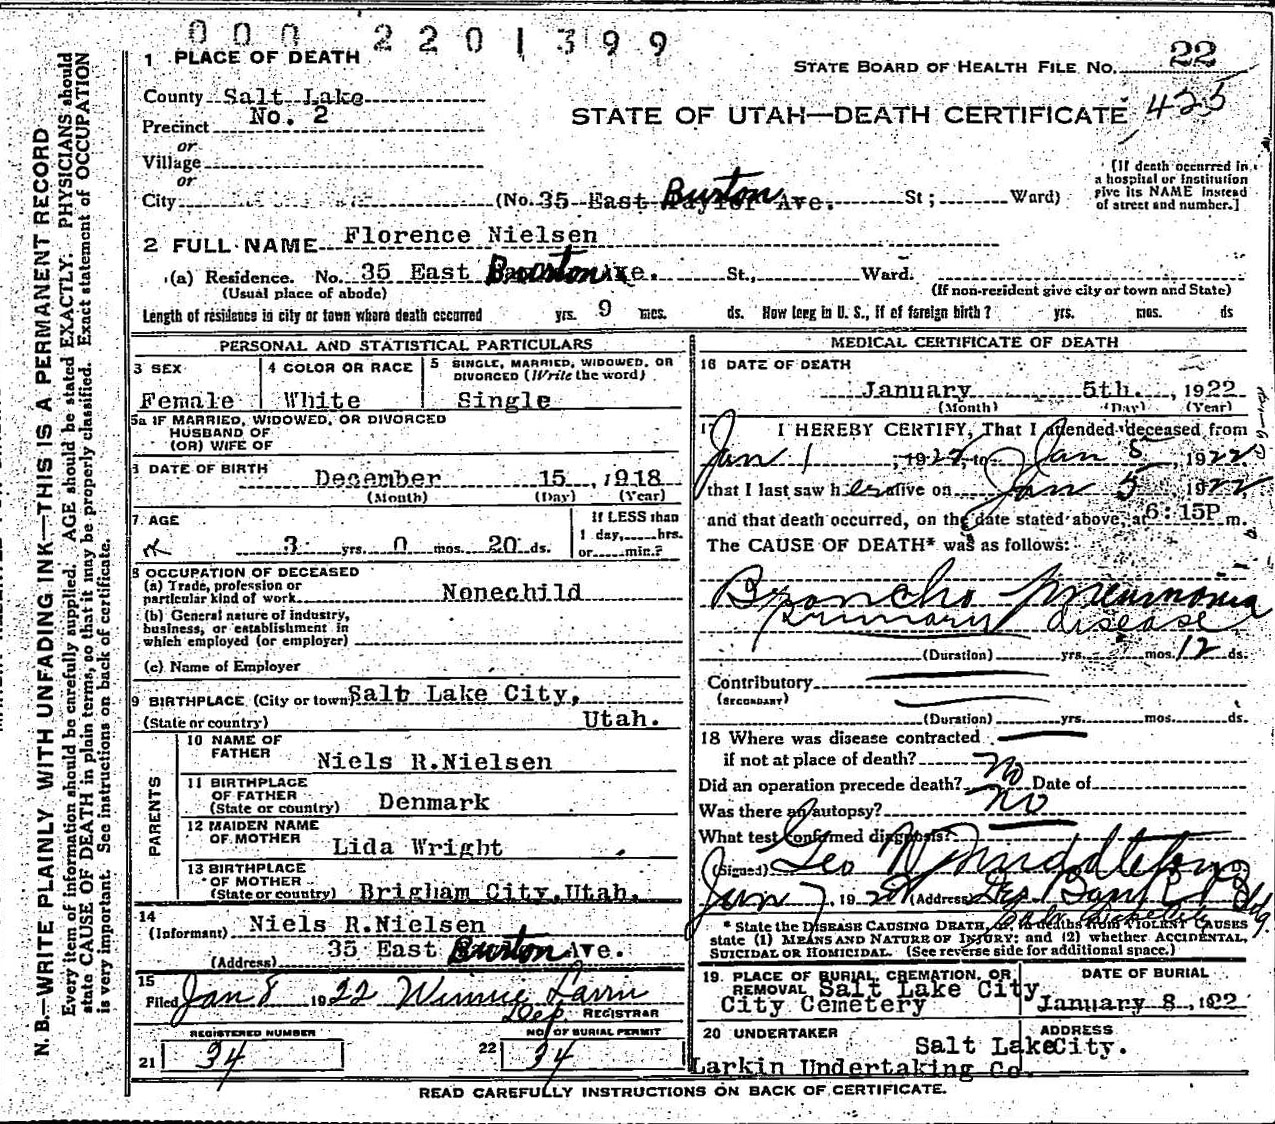 000 2201399
1 PLACE OF DEATH
STATE BOARD OF HEALTH FILE NO. 22
County Salt Lake
425
Precinct No. 2
STATE OF UTAH—DEATH CERTIFICATE
or
Village
or
City (No. 35 East Burton Ave. St; Ward)
[If death occurred in
a hospital or institution
give its NAME instead
of street and number.]
2 FULL NAME Florence Nielsen
(a) Residence. No. 35 East Burton Ave. St., Ward.
(Usual place of abode) (If non-resident give city or town and State)
Length of residence in city or town where death occurred yrs. 9 mos. ds. How long in U. S., if of foreign birth? yrs. mos. ds
PERSONAL AND STATISTICAL PARTICULARS
3 SEX
Female
4 COLOR OR RACE
White
5 SINGLE, MARRIED, WIDOWED, OR
DIVORCED (Write the word)
Single
5a IF MARRIED, WIDOWED, OR DIVORCED
HUSBAND OF
(OR) WIFE OF
6 DATE OF BIRTH
December 15, 1918
(Month) (Day) (Year)
7 AGE
3 yrs. 0 mos. 20 ds.
If LESS than
1 day, hrs.
or min.?
8 OCCUPATION OF DECEASED
(a) Trade, profession or
particular kind of work Nonechild
(b) General nature of industry,
business, or establishment in
which employed (or employer)
(c) Name of Employer
9 BIRTHPLACE (City or town) Salt Lake City,
(State or country) Utah.
PARENTS
10 NAME OF
FATHER Niels R.Nielsen
11 BIRTHPLACE
OF FATHER
(State or country) Denmark
12 MAIDEN NAME
OF MOTHER Lida Wright
13 BIRTHPLACE
OF MOTHER
(State or country) Brigham City,Utah.
14
(Informant) Niels R.Nielsen
(Address) 35 East Burton Ave.
15
Filed Jan 8 1922 Winnie Larin
Dep REGISTRAR
REGISTERED NUMBER
21 34
NO. OF BURIAL PERMIT
22 34
MEDICAL CERTIFICATE OF DEATH
16 DATE OF DEATH
January 5th. , 1922
(Month) (Day) (Year)
17 I HEREBY CERTIFY, That I attended deceased from
Jan 1, 1922, to Jan 5 1922
that I last saw her alive on Jan 5 1922
and that death occurred, on the date stated above, at 6:15P m.
The CAUSE OF DEATH* was as follows:
Broncho Pneumonia
primary disease
(Duration) yrs. mos. 12 ds.
Contributory
(SECONDARY)
(Duration) yrs. mos. ds.
18 Where was disease contracted
if not at place of death?
Did an operation precede death? No Date of
Was there an autopsy? No
What test confirmed diagnosis?
(Signed) Geo W Middleton
Jan 7, 1922 (Address) Des Bank Bldg.
* State the DISEASE CAUSING DEATH, or, in deaths from VIOLENT CAUSES
state (1) MEANS AND NATURE OF INJURY; and (2) whether ACCIDENTAL,
SUICIDAL OR HOMICIDAL. (See reverse side for additional space.)
19. PLACE OF BURIAL, CREMATION, OR
REMOVAL Salt Lake City
City Cemetery
DATE OF BURIAL
January 8, 1922
20 UNDERTAKER
Larkin Undertaking Co.
ADDRESS
Salt Lake City.
READ CAREFULLY INSTRUCTIONS ON BACK OF CERTIFICATE.
N. B.—WRITE PLAINLY WITH UNFADING INK—THIS IS A PERMANENT RECORD
Every item of information should be carefully supplied. AGE should be stated EXACTLY. PHYSICIANS should
state CAUSE OF DEATH in plain terms, so that it may be properly classified. Exact statement of OCCUPATION
is very important. See instructions on back of certificate.